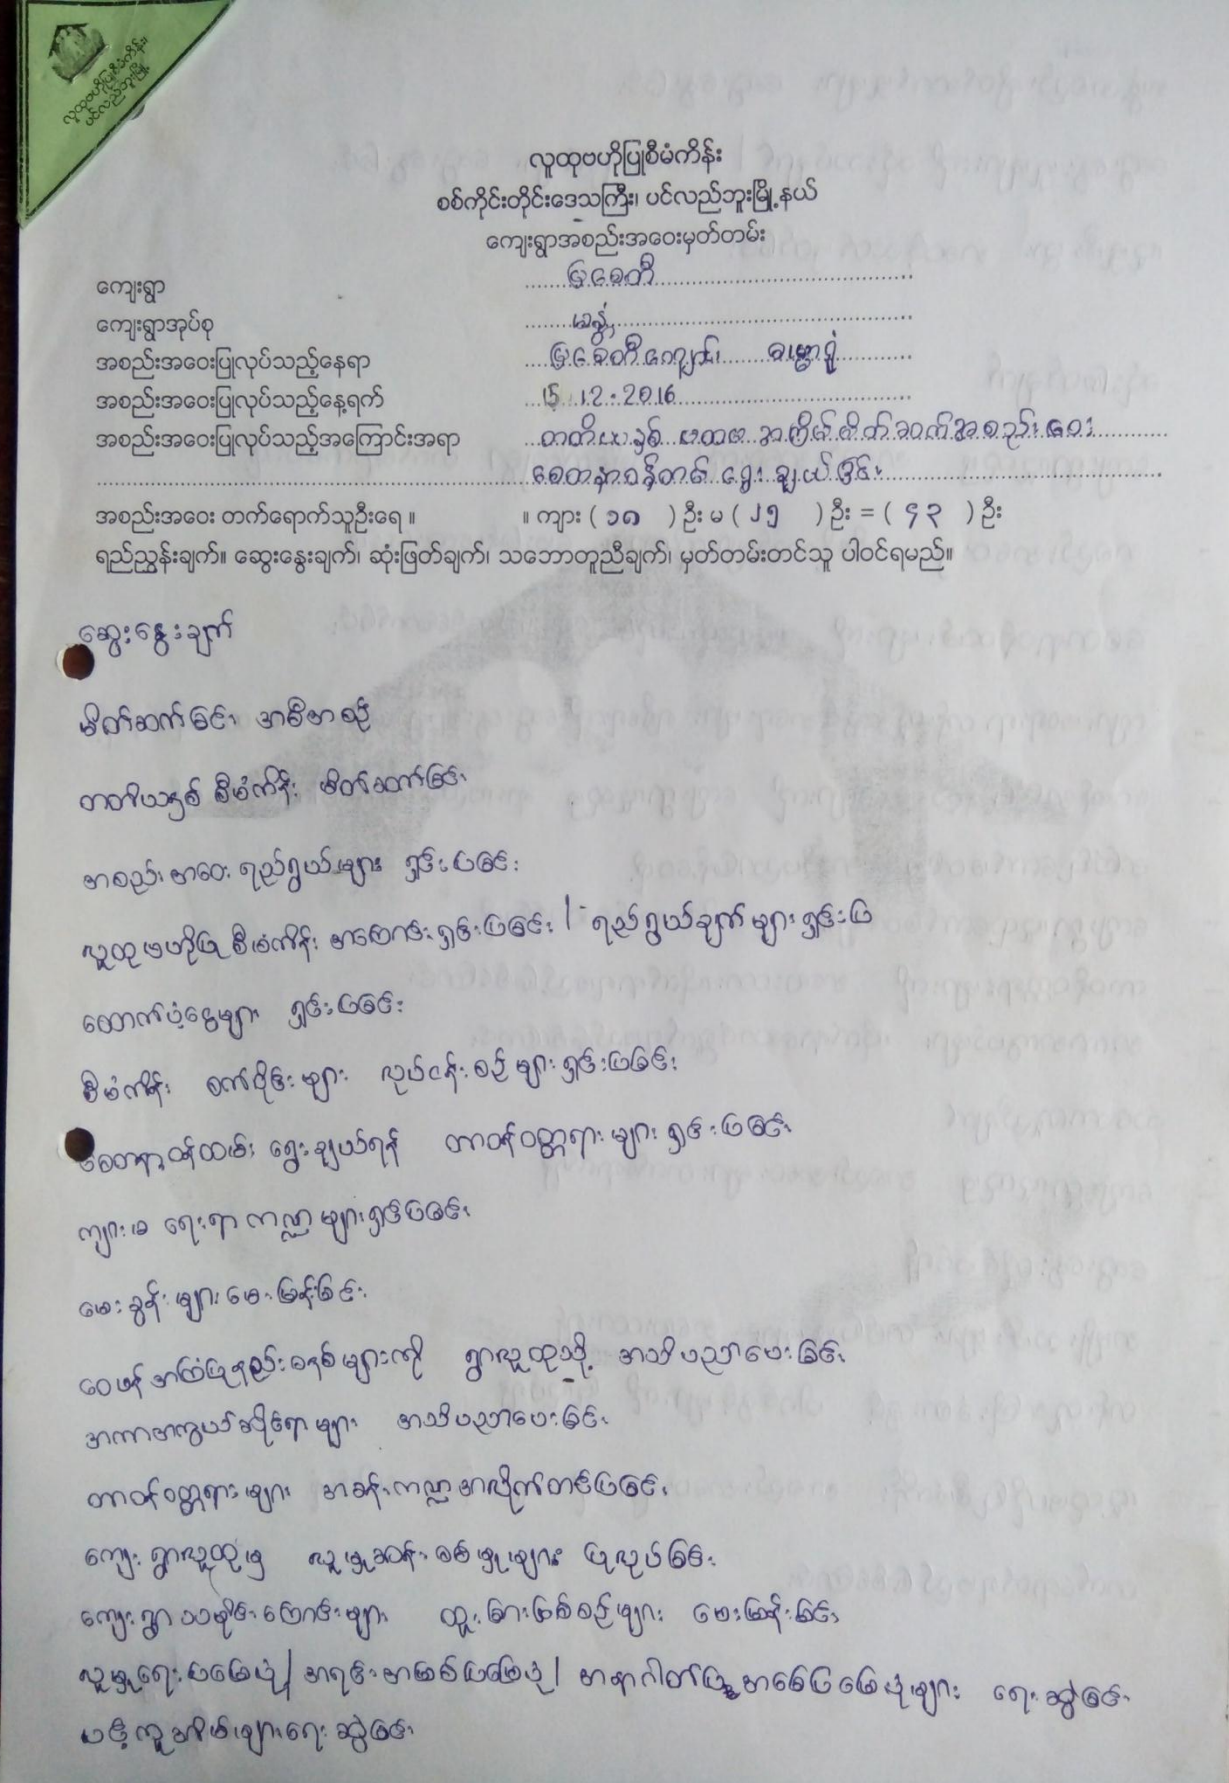 လူထုဗဟိုပြုစီမံကိန်း
ပင်လည်ဘူးမြို့
လူထုဗဟိုပြုစီမံကိန်း
စစ်ကိုင်းတိုင်းဒေသကြီး၊ ပင်လည်ဘူးမြို့နယ်
ကျေးရွာအစည်းအဝေးမှတ်တမ်း
ကျေးရွာ မြစေတီ
ကျေးရွာအုပ်စု
အစည်းအဝေးပြုလုပ်သည့်နေရာ မြစေတီကျေးရွာ၊ ဓမ္မာရုံ
အစည်းအဝေးပြုလုပ်သည့်နေ့ရက် 15.12-2016
အစည်းအဝေးပြုလုပ်သည့်အကြောင်းအရာ တတိယနှစ် ပထမ အကြိမ်မိတ်ဆက်အစည်းအဝေး
စေတနာ့ဝန်ထမ်း ရွေးချယ်ခြင်း
အစည်းအဝေး တက်ရောက်သူဦးရေ ။ ။ ကျား ( ၁၈ ) ဦး မ ( ၂၅ ) ဦး = ( ၄၃ ) ဦး
ရည်ညွှန်းချက်။ ဆွေးနွေးချက်၊ ဆုံးဖြတ်ချက်၊ သဘောတူညီချက်၊ မှတ်တမ်းတင်သူ ပါဝင်ရမည်။
ဆွေးနွေးချက်
မိတ်ဆက်ခြင်း အစီအစဉ်
တတိယနှစ် စီမံကိန်း မိတ်ဆက်ခြင်း
အစည်းအဝေး ရည်ရွယ်များ ရှင်းပြခြင်း
လူထုဗဟိုပြု စီမံကိန်း အကြောင်း ရှင်းပြခြင်း / ရည်ရွယ်ချက်များ ရှင်းပြ
ထောက်ပံ့ငွေများ ရှင်းပြခြင်း
စီမံကိန်း စက်ဝိုင်းများ လုပ်ငန်းစဉ်များ ရှင်းပြခြင်း
စေတနာ့ဝန်ထမ်း ရွေးချယ်ရန် တာဝန်ဝတ္တရားများ ရှင်းပြခြင်း
ကျား မ ရေးရာ ကဏ္ဍများရှင်းပြခြင်း
မေးခွန်းများ မေးမြန်းခြင်း
ဝေဖန်အကြံပြုနည်းစနစ်များကို ရွာလူထုသို့ အသိပညာပေးခြင်း
အကာအကွယ်ဆိုင်ရာများ အသိပညာပေးခြင်း
တာဝန်ဝတ္တရားများ အခန်းကဏ္ဍအလိုက်တင်ပြခြင်း
ကျေးရွာလူထုမှ လူမှုဆန်းစစ်မှုများ ပြုလုပ်ခြင်း
ကျေးရွာ သမိုင်းကြောင်းများ ထူးခြားဖြစ်စဉ်များ မေးမြန်းခြင်း
လူမှုရေးပြမြေပုံ / အရင်းအမြစ်ပြမြေပုံ / အနာဂါတ်ပြ အခြေပြမြေပုံများ ရေးဆွဲခြင်း
ပင့်ကူအိမ်များရေးဆွဲခြင်း